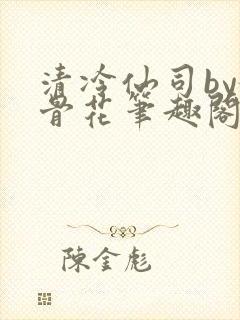 清冷仙司by
骨花笔趣阁
陳金彪